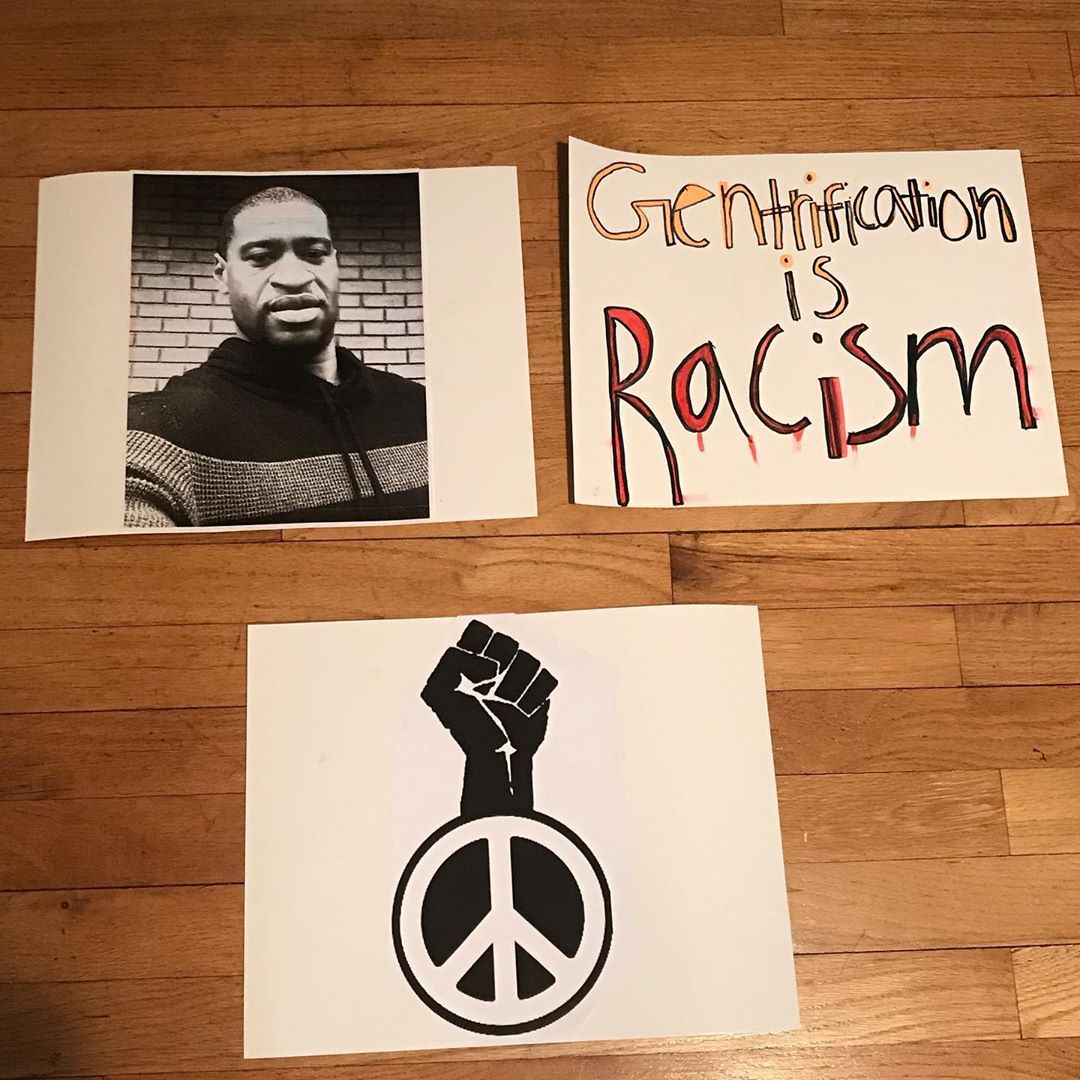 Gentrification
is
Racism